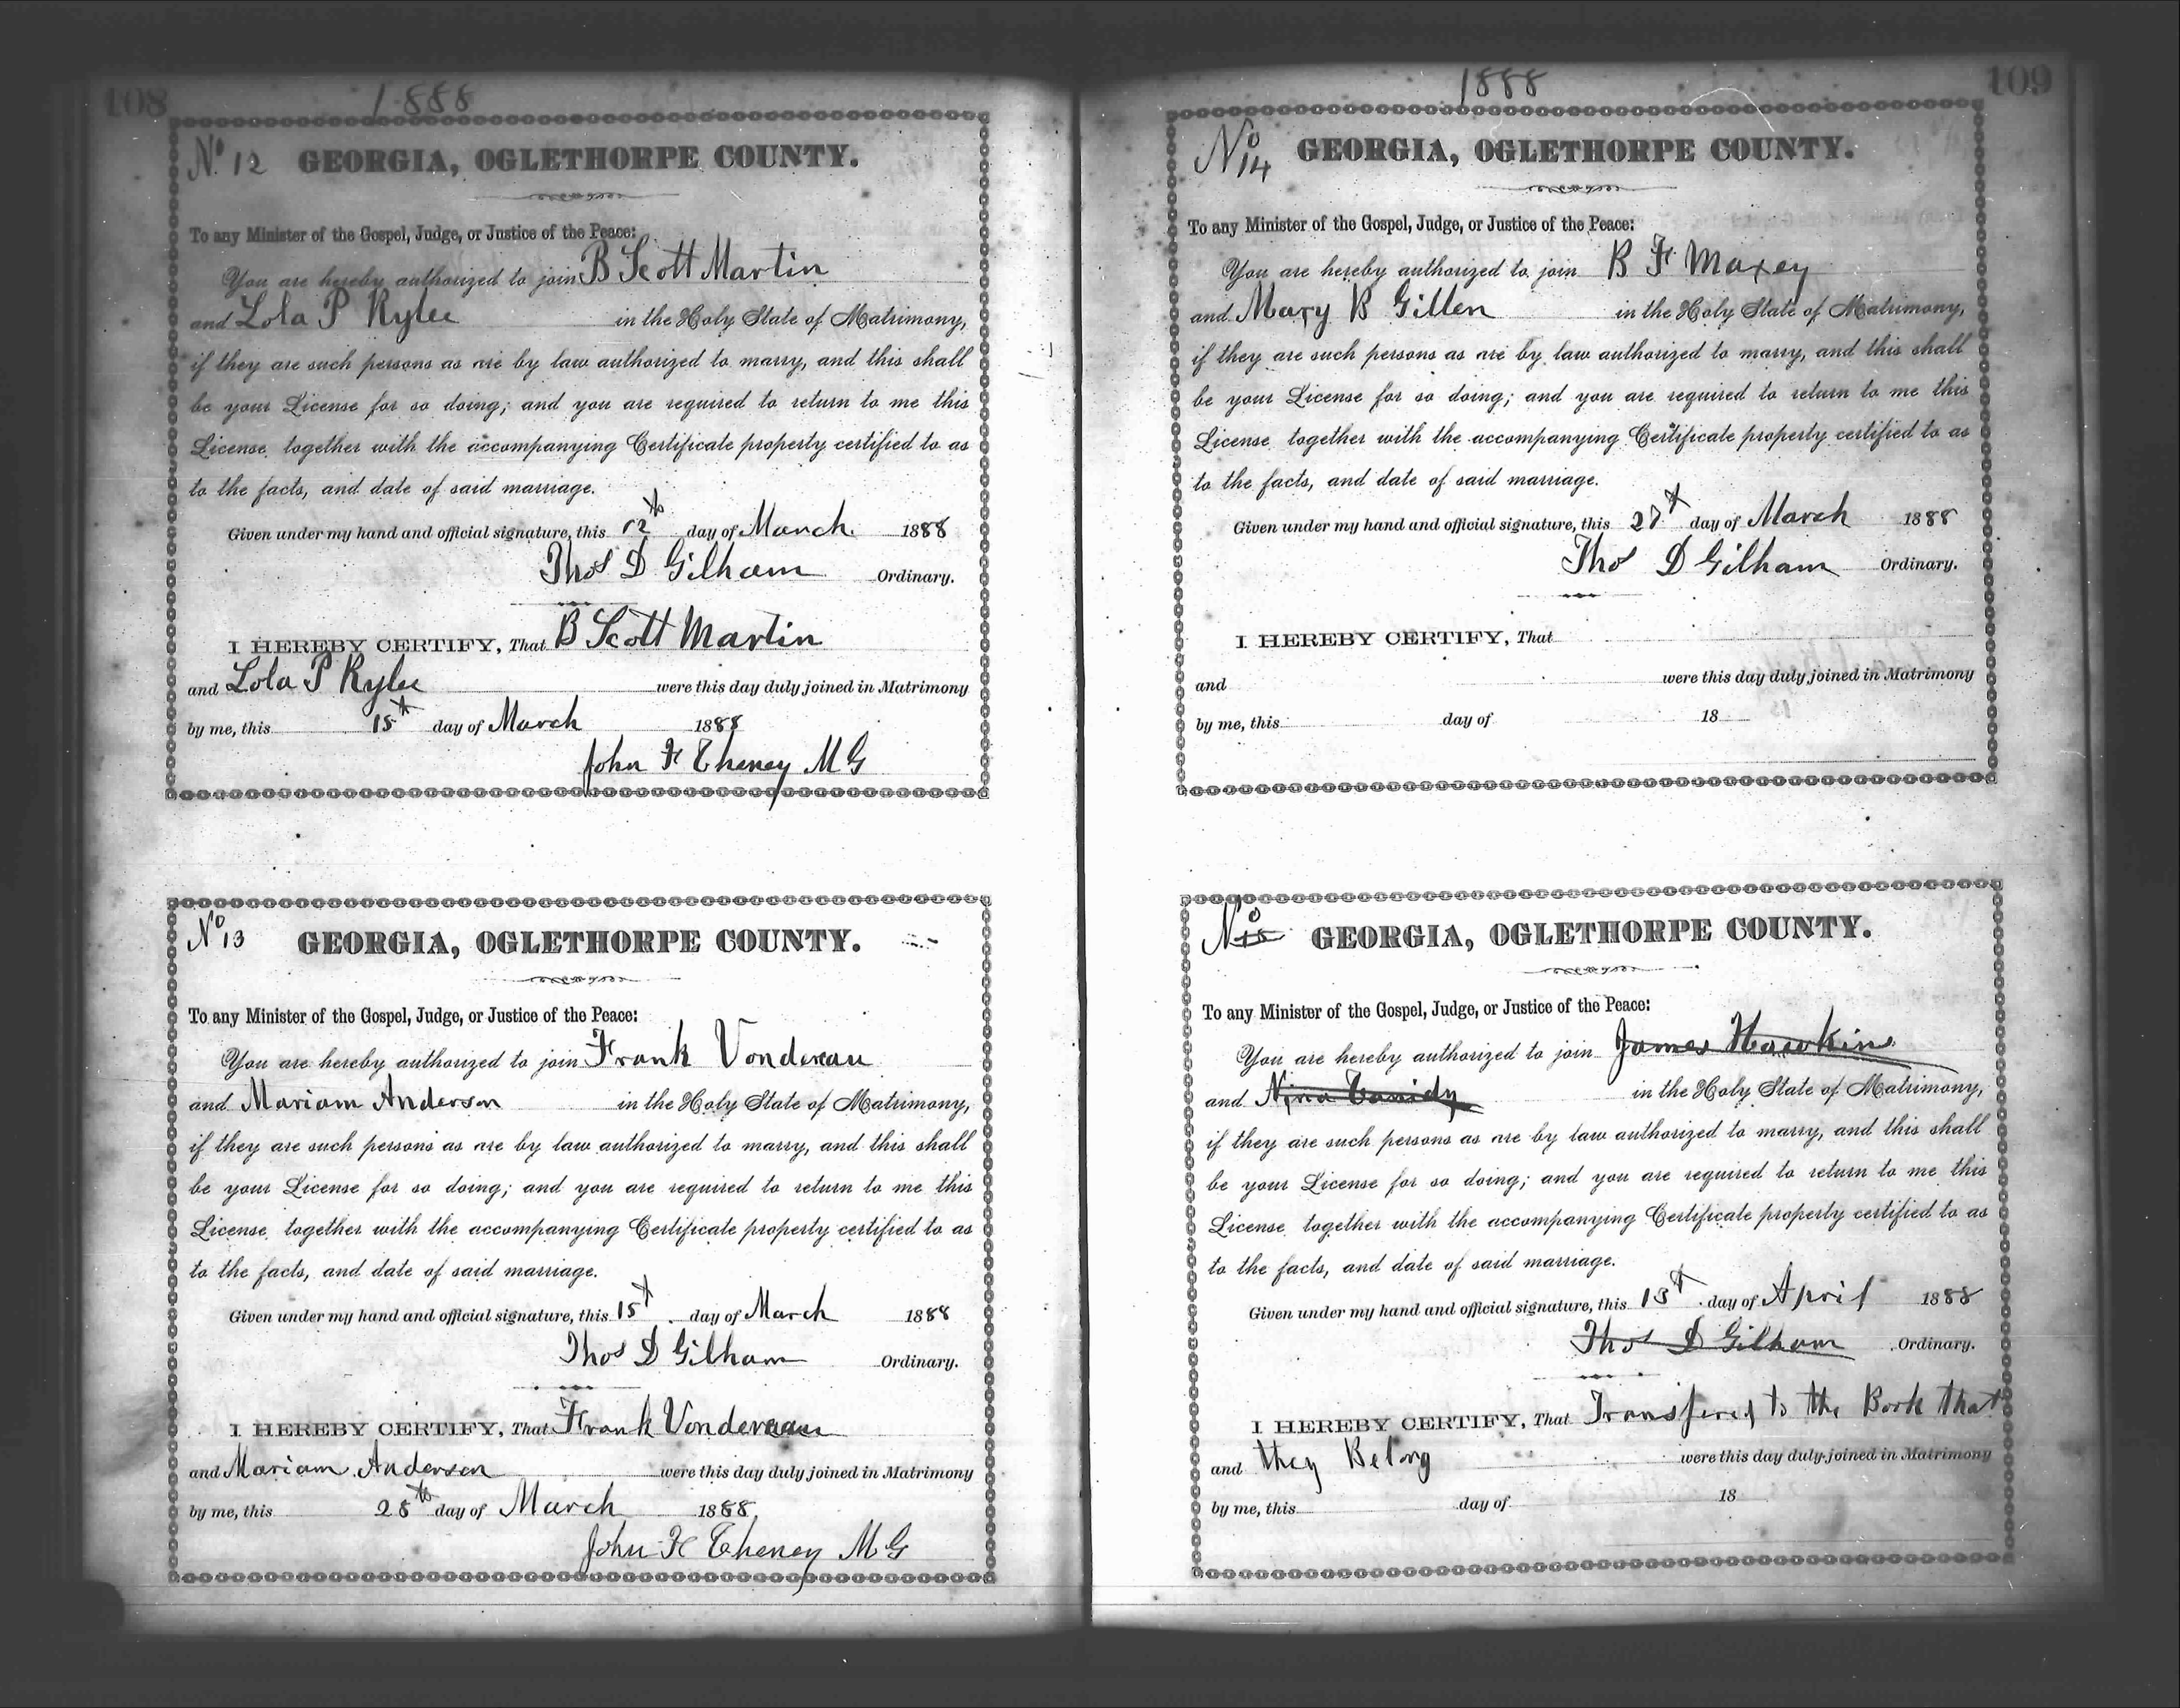 108
1888
No. 12 GEORGIA, OGLETHORPE COUNTY.
To any Minister of the Gospel, Judge, or Justice of the Peace:
You are hereby authorized to join B Scott Martin
and Lola P Rylee in the Holy State of Matrimony,
if they are such persons as are by law authorized to marry, and this shall
be your License for so doing; and you are required to return to me this
License, together with the accompanying Certificate property certified to as
to the facts, and date of said marriage.
Given under my hand and official signature, this 12th day of March 1888
Thos D Gilham Ordinary.
I HEREBY CERTIFY, That B Scott Martin
and Lola P Rylee were this day duly joined in Matrimony
by me, this 15th day of March 1888
John F Cheney M G
No 13 GEORGIA, OGLETHORPE COUNTY.
To any Minister of the Gospel, Judge, or Justice of the Peace:
You are hereby authorized to join Frank Vondereau
and Mariam Anderson in the Holy State of Matrimony,
if they are such persons as are by law authorized to marry, and this shall
be your License for so doing; and you are required to return to me this
License, together with the accompanying Certificate property certified to as
to the facts, and date of said marriage.
Given under my hand and official signature, this 15th day of March 1888
Thos D Gilham Ordinary.
I HEREBY CERTIFY, That Frank Vondereau
and Mariam Anderson were this day duly joined in Matrimony
by me, this 28th day of March 1888
John F Cheney M G
1888
109
No 14 GEORGIA, OGLETHORPE COUNTY.
To any Minister of the Gospel, Judge, or Justice of the Peace:
You are hereby authorized to join B F Maxey
and Mary B Gillen in the Holy State of Matrimony,
if they are such persons as are by law authorized to marry, and this shall
be your License for so doing; and you are required to return to me this
License, together with the accompanying Certificate property certified to as
to the facts, and date of said marriage.
Given under my hand and official signature, this 27th day of March 1888
Thos D Gilham Ordinary.
I HEREBY CERTIFY, That
and were this day duly joined in Matrimony
by me, this day of 18
No GEORGIA, OGLETHORPE COUNTY.
To any Minister of the Gospel, Judge, or Justice of the Peace:
You are hereby authorized to join James Hawkins
and in the Holy State of Matrimony,
if they are such persons as are by law authorized to marry, and this shall
be your License for so doing; and you are required to return to me this
License, together with the accompanying Certificate property certified to as
to the facts, and date of said marriage.
Given under my hand and official signature, this 13th day of April 1888
Thos D Gilham Ordinary.
I HEREBY CERTIFY, That Transfered to the Book that
and they Belong were this day duly joined in Matrimony
by me, this day of 18